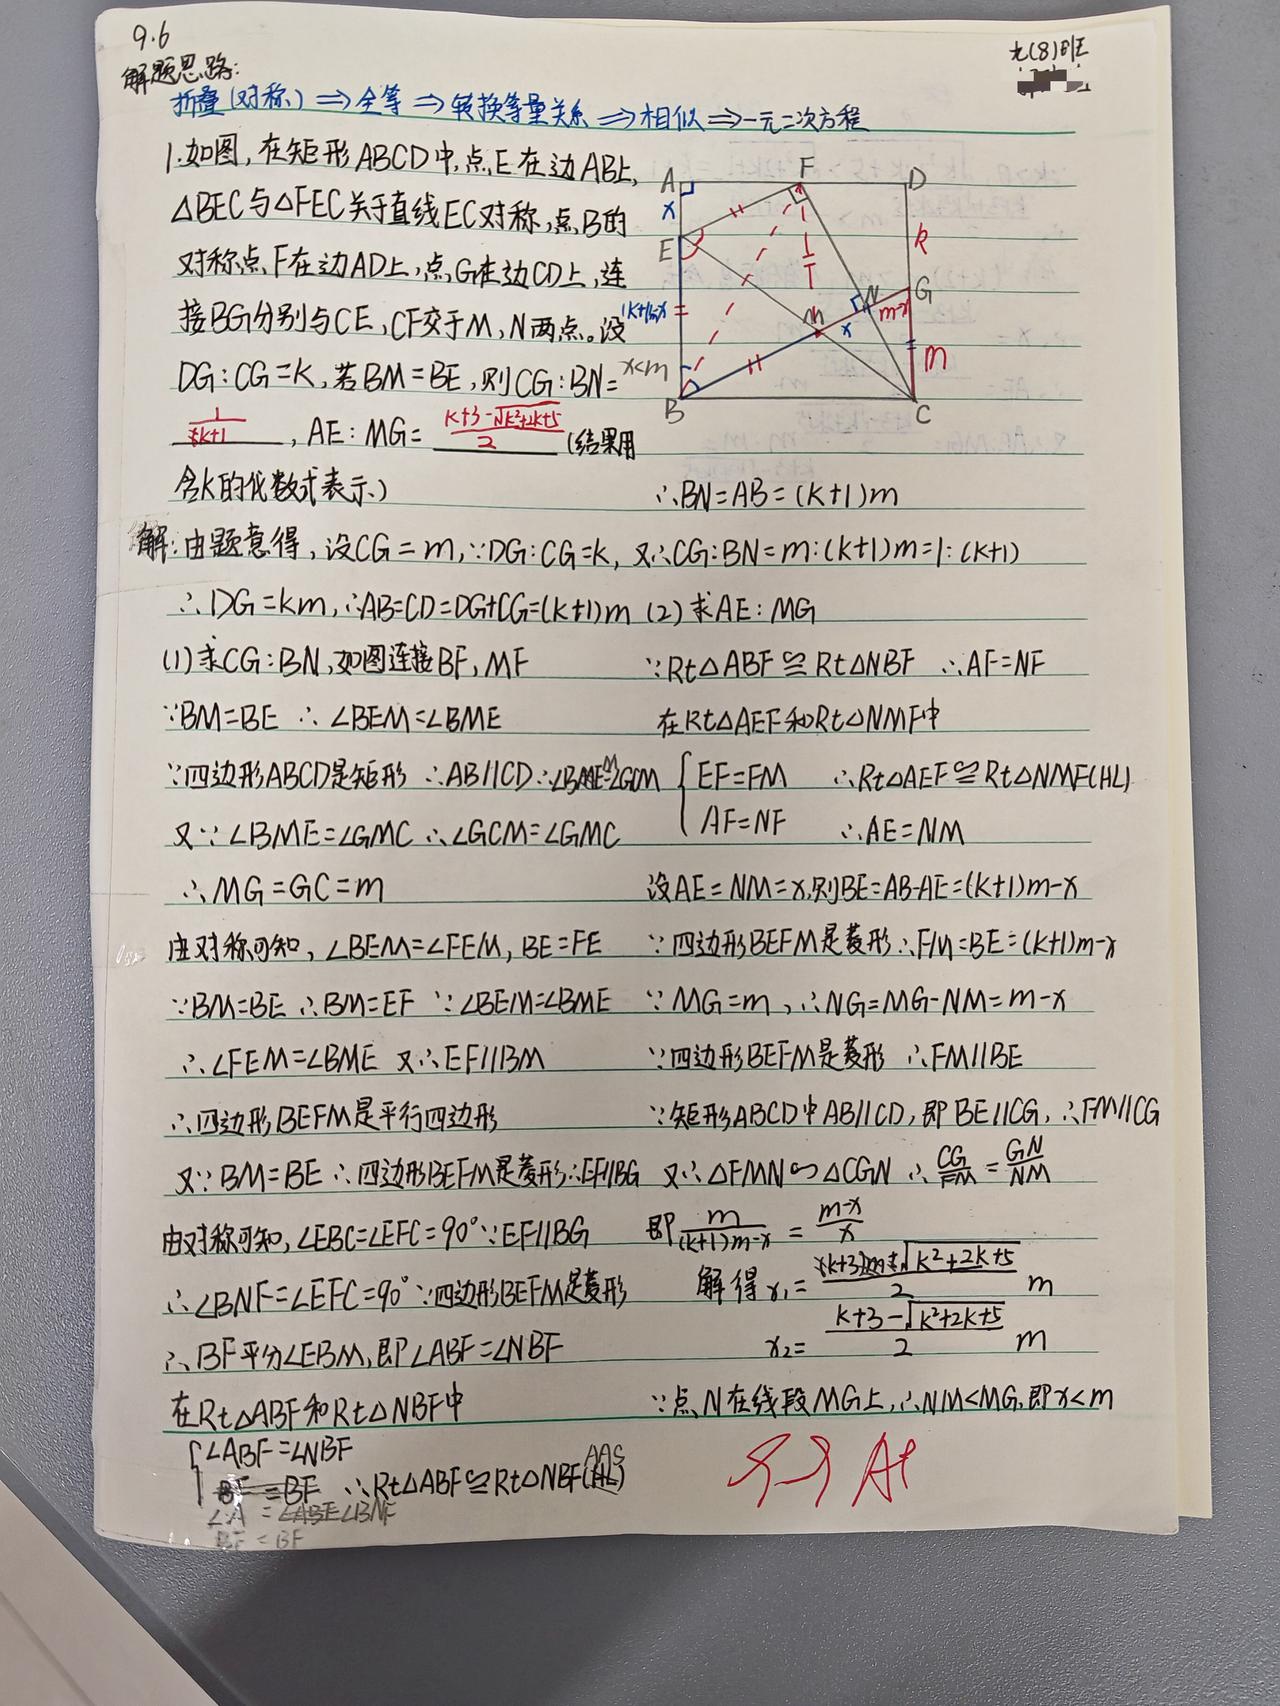 9.6
九(8)班
解题思路:
折叠(对称)⇒全等⇒转换等量关系⇒相似⇒一元二次方程
1.如图,在矩形ABCD中,点E在边AB上,
△BEC与△FEC关于直线EC对称,点B的
对称点F在边AD上,点G在边CD上,连
接BG分别与CE,CF交于M,N两点。设
DG:CG=k,若BM=BE,则CG:BN=
1/(k+1),AE:MG=(k+3-√(k²+2k+5))/2(结果用
含k的代数式表示)
A F D
x k
E
(k+1)m-x N G
M x m-x
x<m m
B C
解:由题意得,设CG=m,∵DG:CG=k,
∴DG=km,∴AB=CD=DG+CG=(k+1)m
(1)求CG:BN,如图连接BF,MF
∵BM=BE ∴∠BEM=∠BME
∵四边形ABCD是矩形 ∴AB∥CD∴∠BME=∠GCM
又∵∠BME=∠GMC ∴∠GCM=∠GMC
∴MG=GC=m
由对称可知,∠BEM=∠FEM,BE=FE
∵BM=BE ∴BM=EF ∵∠BEM=∠BME
∴∠FEM=∠BME 又∴EF∥BM
∴四边形BEFM是平行四边形
又∵BM=BE ∴四边形BEFM是菱形∴EF∥BG
由对称可知,∠EBC=∠EFC=90°∵EF∥BG
∴∠BNF=∠EFC=90°∵四边形BEFM是菱形
∴BF平分∠EBM,即∠ABF=∠NBF
在Rt△ABF和Rt△NBF中
{∠ABF=∠NBF
BF=BF ∴Rt△ABF≌Rt△NBF(HL) AAS
∠A=∠ABE∠BNF
BF=BF
∴BN=AB=(k+1)m
又∴CG:BN=m:(k+1)m=1:(k+1)
(2)求AE:MG
∵Rt△ABF≌Rt△NBF ∴AF=NF
在Rt△AEF和Rt△NMF中
{EF=FM ∴Rt△AEF≌Rt△NMF(HL)
AF=NF ∴AE=NM
设AE=NM=x,则BE=AB-AE=(k+1)m-x
∵四边形BEFM是菱形∴FM=BE=(k+1)m-x
∵MG=m,∴NG=MG-NM=m-x
∵四边形BEFM是菱形 ∴FM∥BE
∵矩形ABCD中AB∥CD,即BE∥CG,∴FM∥CG
又∴△FMN∽△CGN ∴CG/FM=GN/NM
即m/((k+1)m-x)=(m-x)/x
解得x₁=(k+3+√(k²+2k+5))/2 m
x₂=(k+3-√(k²+2k+5))/2 m
∵点N在线段MG上,∴NM<MG,即x<m
A+